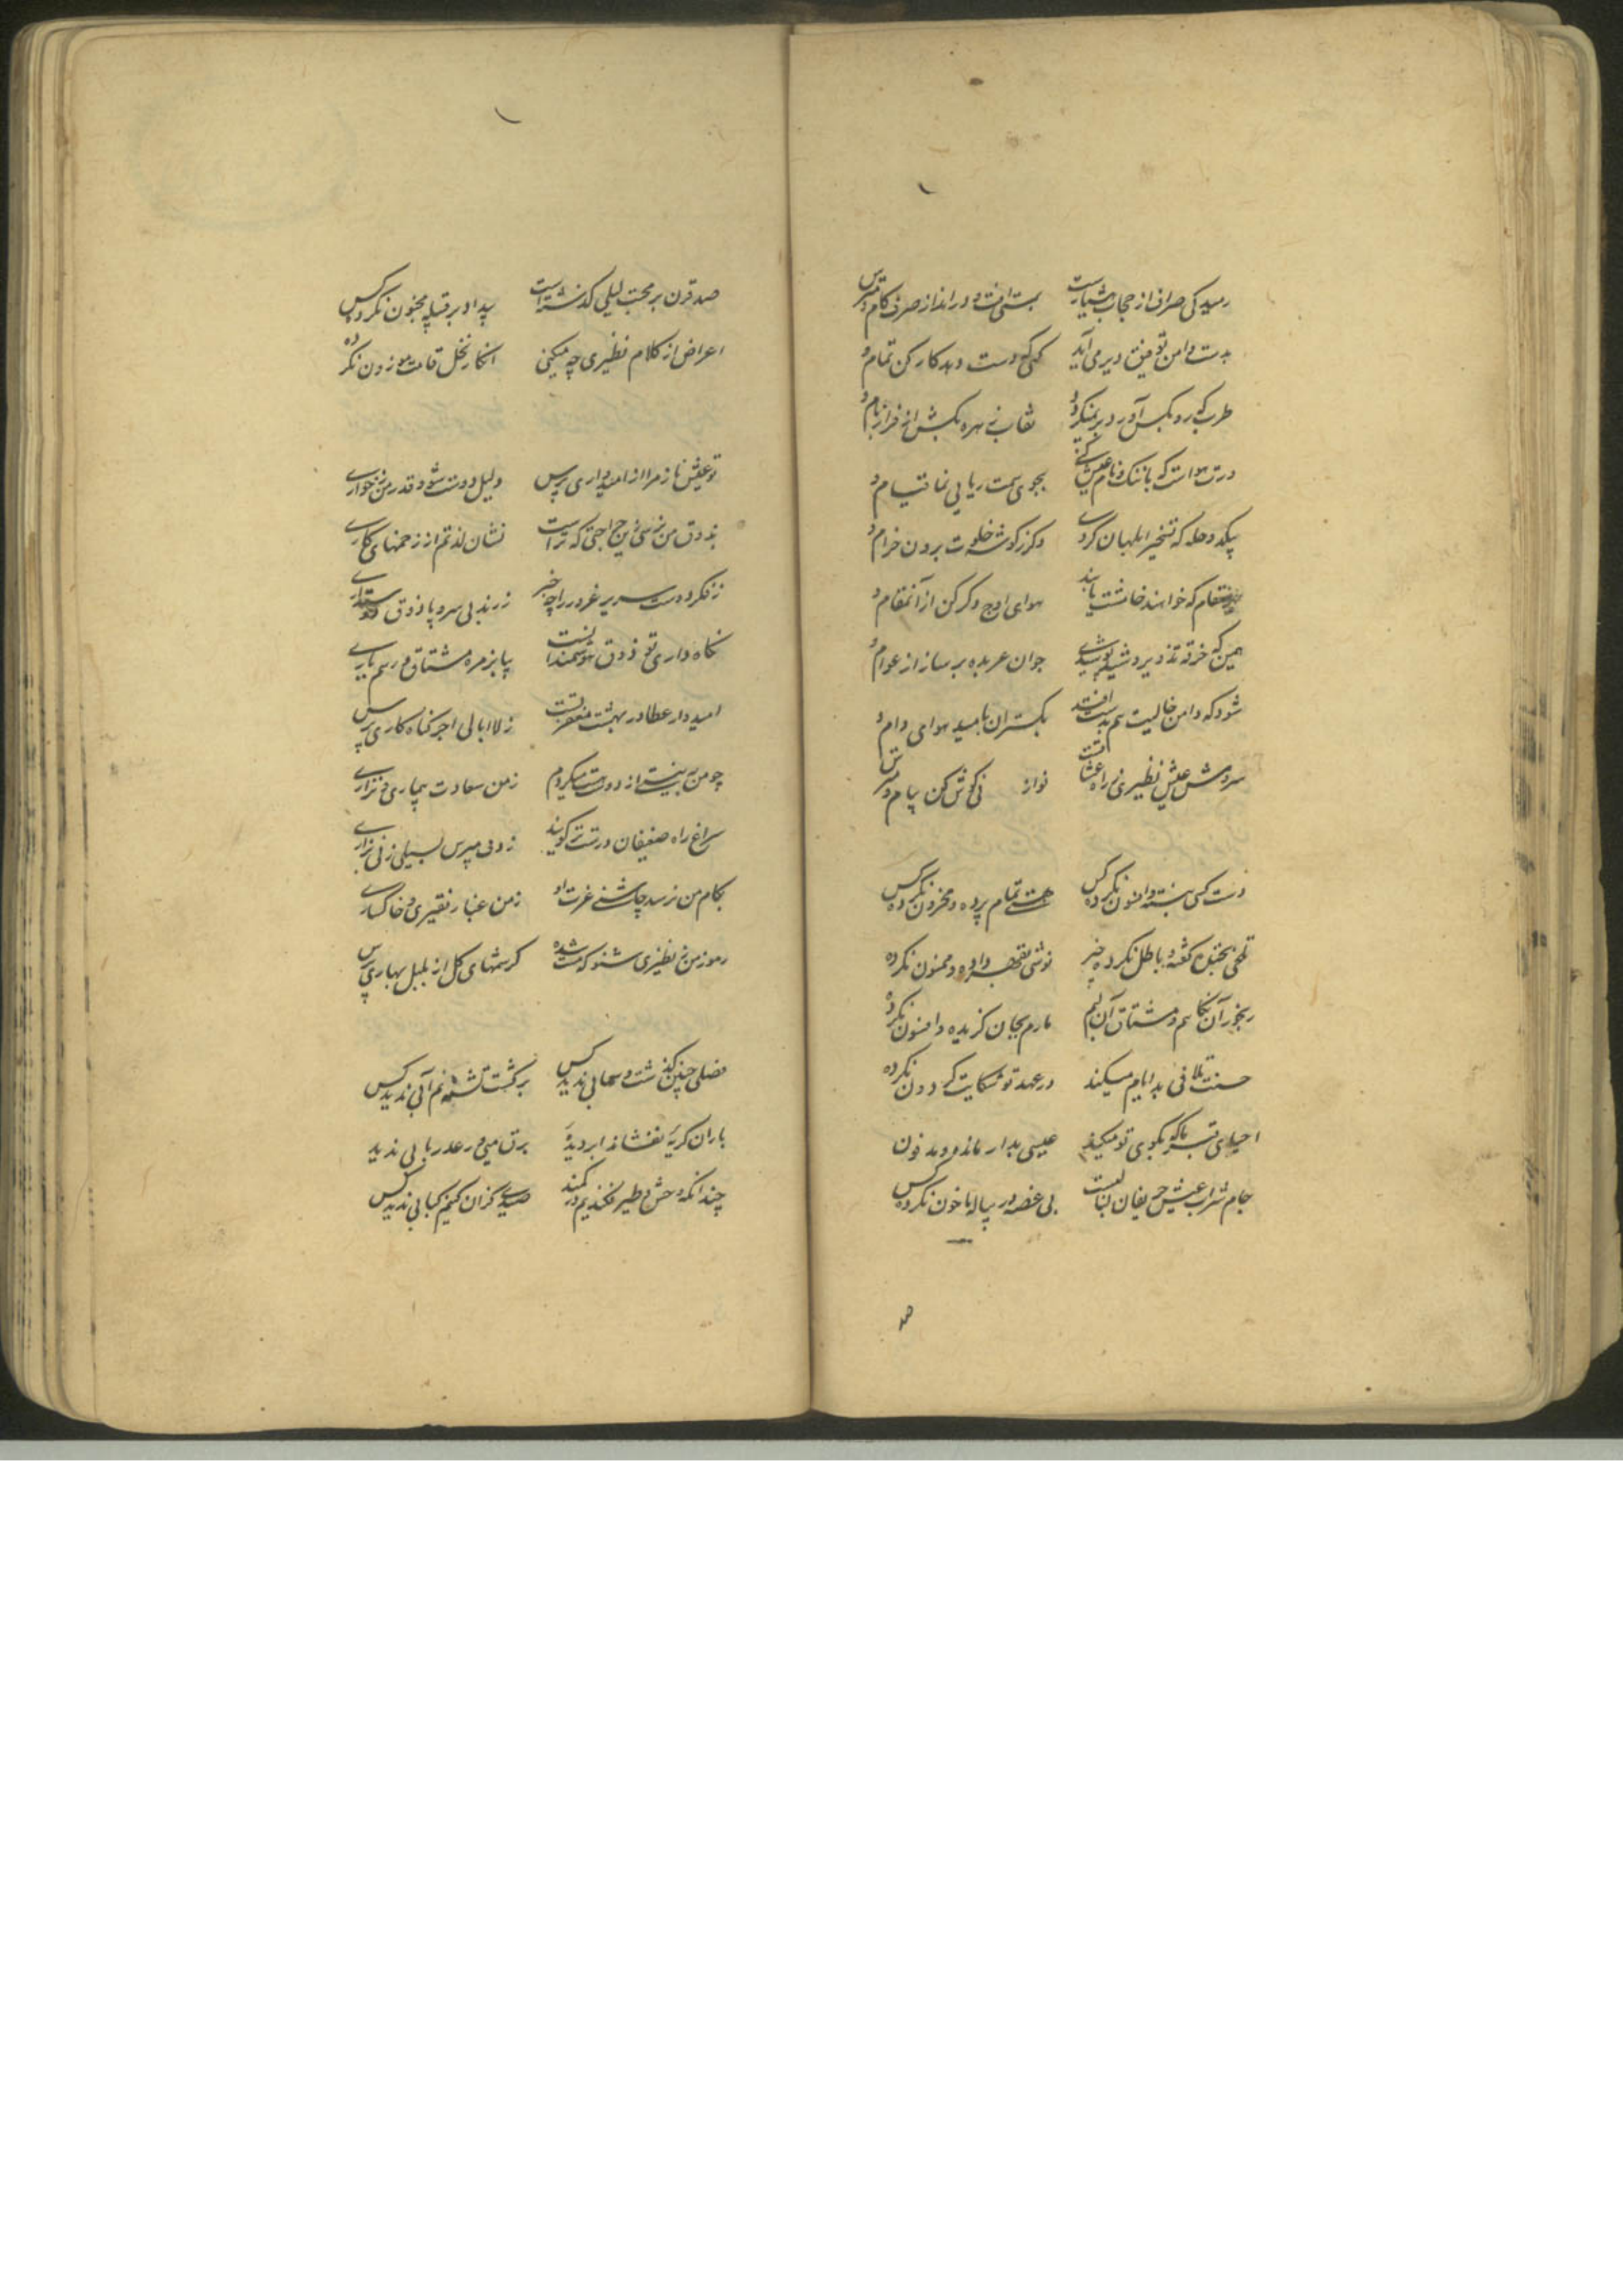 رمیدکی صراف از حجاب هشیاریست بمستی افت و در انداز صرف کام و مترس
بدست دامن توفیق دیر می آید کمی که دست دهد کار کن تمام و
طرب که رو بکس آورد دیر نمیکردد نقاب زهره بکش از فراز بام و
درت هواست که با ننک و نام عیش کنی بجوی مست ریایی نما قیام و
بیکدو حله که تسخیر ابلهان کردی دکر ز کوشه خلوت برون خرام و
که خوانند خامشت یابند هوای اوج دکر کن از آنمقام و
همین که خرقه تزویر دوشید پوشیدی جوان عربده بر ساز از عوام و
شود که دامن خالیت هم بدست افتد بکستران بامید هوای دام و
سروش عیش نظیری ز راه عشاقست نوازنی کوش کن پیام و مترس
دست کسی نبسته و افسون نکرده کس هستی تمام برده و محزون نکرده کس
تلخی بحق نکفته و باطل نکرده خبر نوشی بقهر داده و ممنون نکرده
رنجور آن نکاهم و مشتاق آن لبم مارم بجان کزیده و افسون نکرده
حسنت تلافی بد ایام میکند در عهد تو شکایت کردون نکرده
احیای بکوی تو میکنند عیسی بدار مانده و مدفون
جام شراب عیش حریفان لبالبست بی غصه در پیاله ما خون نکرده کس
صد
صد قرن بر محبت لیلی کذشته است بیداد بر قبیله مجنون نکرده کس
اعراض از کلام نظیری چه میکنی انکار نخل قامت موزون نکرده
تو عیش ناز مرا از امیدواری پرس دلیل دوست شو و قدر من ز خواری
بذوق من نرسی زین جراحتی که تراست نشان لذتم از زخمهای کاری
ز فکر دوست سریر غرور را چه خبر ز رند بی سر و پا ذوق
نکاه داری تو ذوق هوشمندانست بیا بزمره مشتاق و رسم یاری
امیدوار عطا در بهشت مغفرتست ز لاابالی اجر کناه کاری پرس
چو من به نیستی از دوست میکردم ز من سعادت بیماری و نزاری
سراغ راه ضعیفان درست تر کویند ز دف مپرس بسیلی ز نی بزاری
بکام من نرسد چاشنی عزت او ز من عیار فقیری و خاکساری
رموز من ز نظیری شنو که مست شده کرشمهای کل از بلبل بهاری پرس
فصلی چنین کذشت و سحابی ندید کس بر کشت تشنه نم آبی ندید کس
باران کریهٔ نفشاند ابر دیدهٔ برق میی و رعد ربابی ندید
چندانکه وحش و طیر فکندیم در کمند صیدی کزان کنیم کبابی ندید کس